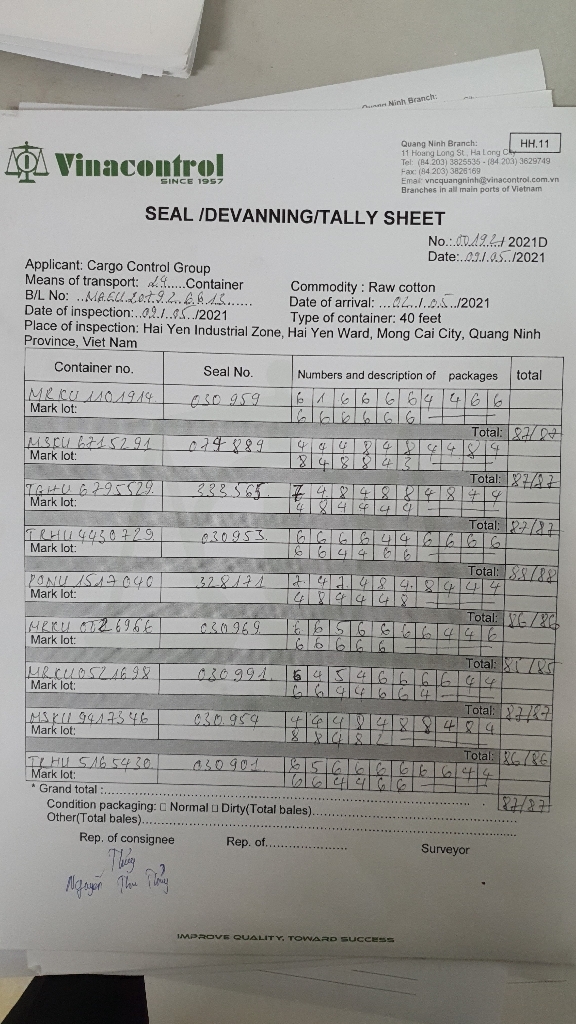 Ninh Branch:
Vinacontrol
SINCE 1957
Quang Ninh Branch:
11 Hoang Long St., Ha Long City
Tel: (84.203) 3825535 - (84.203) 3829749
Fax: (84.203) 3826169
Email: vncquangninh@vinacontrol.com.vn
Branches in all main ports of Vietnam
HH.11
SEAL /DEVANNING/TALLY SHEET
No.: 00192 / 2021D
Date: 09/05/2021
Applicant: Cargo Control Group
Means of transport: 29 Container
Commodity : Raw cotton
B/L No:
Date of arrival: 02/05/2021
Date of inspection: 09/05/2021
Type of container: 40 feet
Place of inspection: Hai Yen Industrial Zone, Hai Yen Ward, Mong Cai City, Quang Ninh
Province, Viet Nam
Container no. Seal No. Numbers and description of packages total
MRKU 1101914 030 959 6 1 6 6 6 6 4 4 6 6
Mark lot: 6 6 6 6 6 6
Total: 87/87
MSKU 6715291 074889 4 4 4 8 4 8 4 4 8 4
Mark lot: 8 4 8 8 4 3
Total: 87/87
TGHU 6795529 333565 7 4 8 4 8 8 4 8 4 4
Mark lot: 4 8 4 4 4 4
Total: 87/87
TRHU 4430729 030953 6 6 6 6 4 4 6 6 6 6
Mark lot: 6 6 4 4 6 6
Total: 88/88
PONU 1517040 328171 4 8 4 4 4
Mark lot: 4 8 4 4 4 8
Total: 86/86
MRKU 0026966 030969 6 6 5 6 6 6 6 4 4 6
Mark lot: 6 6 6 6 6
Total: 85/85
MRKU0521698 030991 5 4 5 4 6 6 6 6 4 4
Mark lot: 6 6 4 4 6 6 4
Total: 87/87
MSKU 9417346 030954 4 4 4 8 4 8 8 4 8 4
Mark lot: 8 8 4 8
Total: 86/86
TRHU 5165430 030901 6 5 6 6 6 6 6 6 4 4
Mark lot: 6 6 4 4 6 6
* Grand total : 87/87
Condition packaging: □ Normal □ Dirty(Total bales)
Other(Total bales)
Rep. of consignee Rep. of Surveyor
Thủy
Nguyễn Thu Thủy
IMPROVE QUALITY, TOWARD SUCCESS